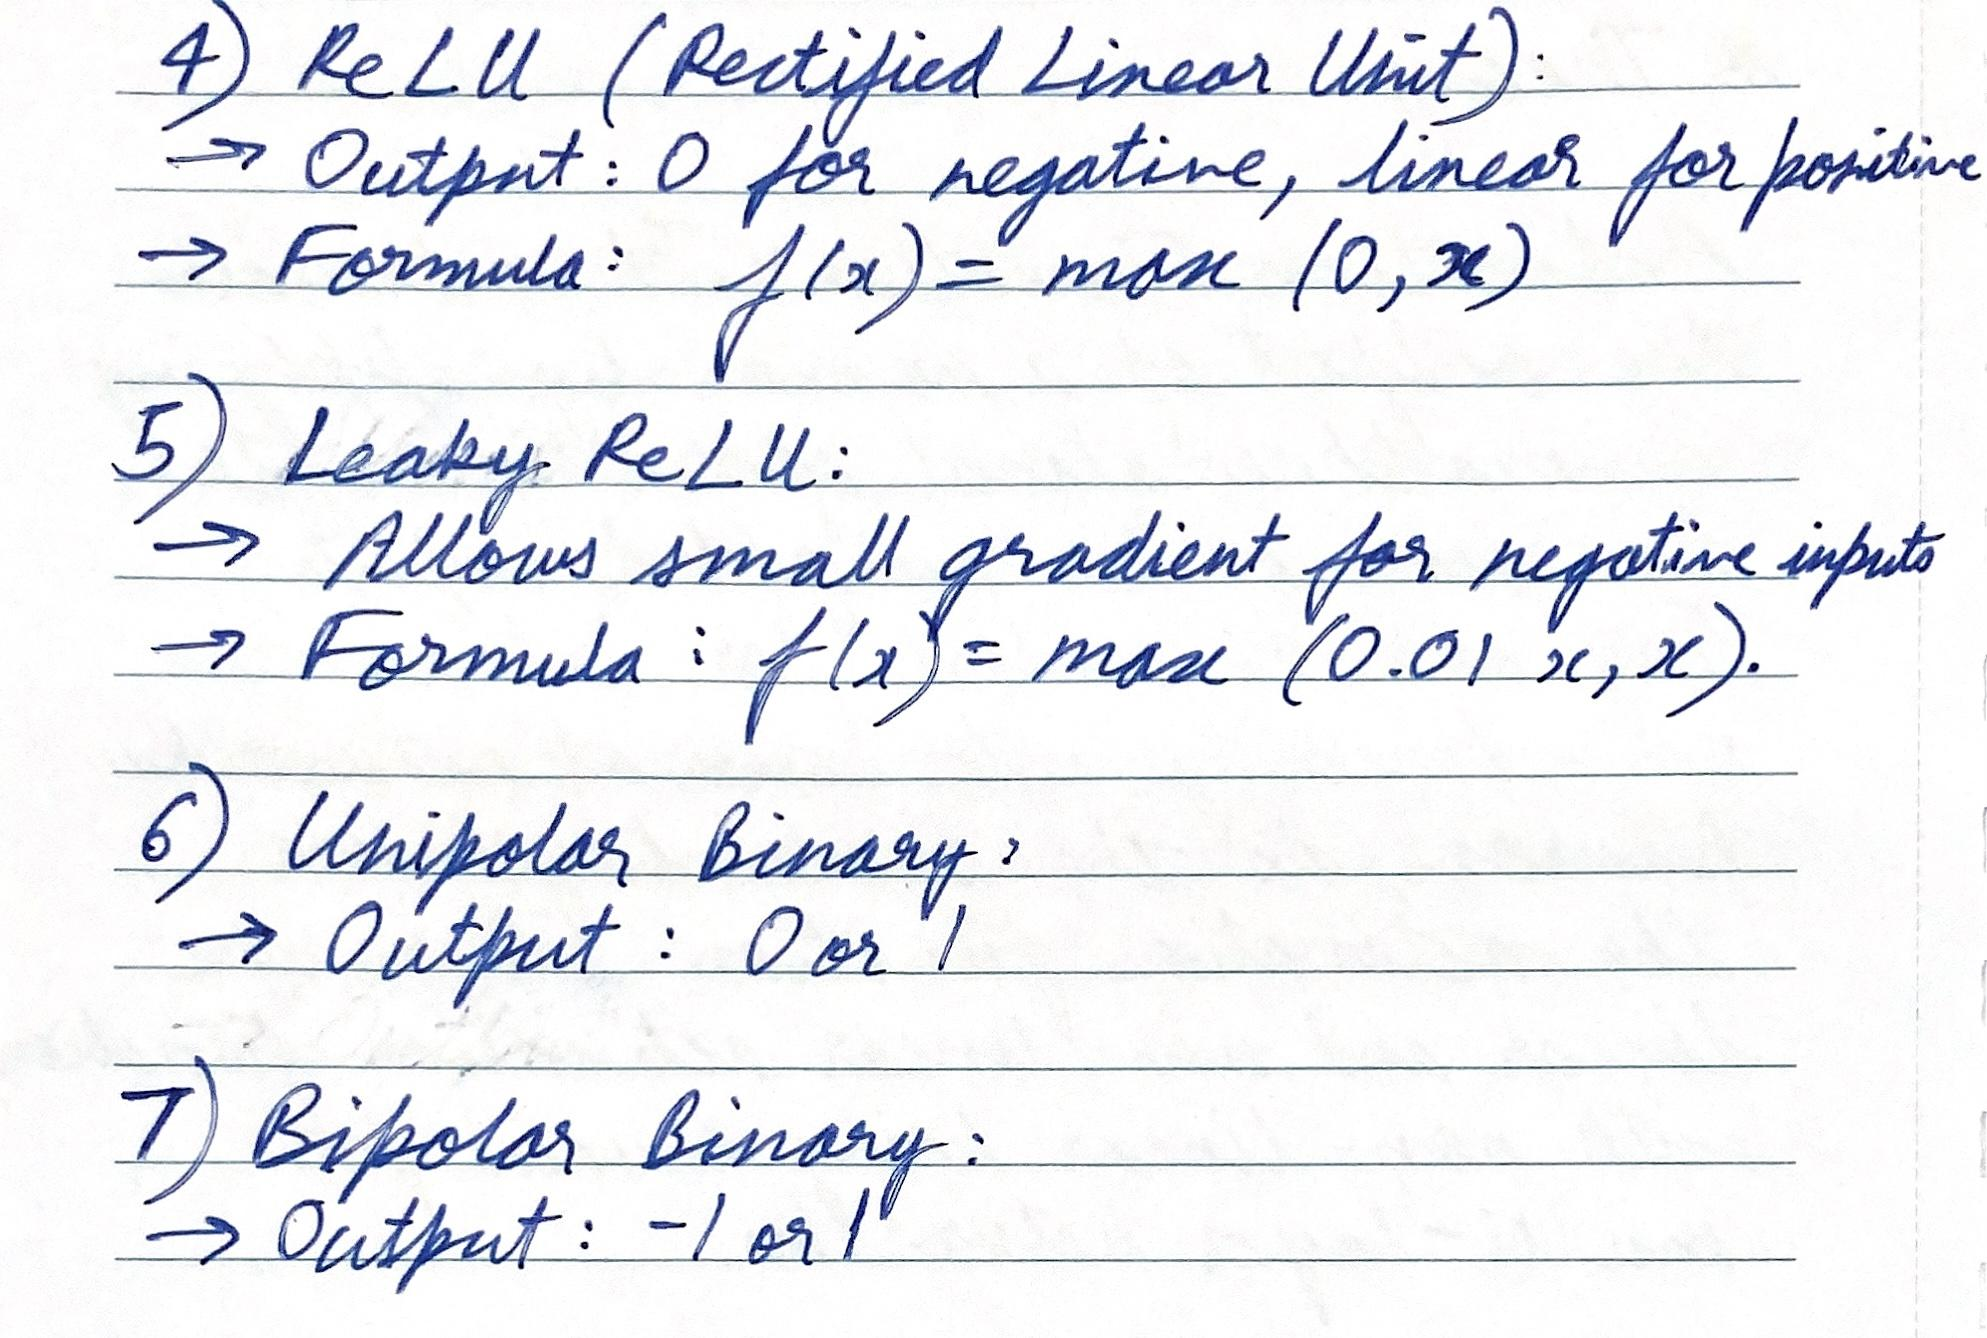 4) ReLU (Rectified Linear Unit):
→ Output: 0 for negative, linear for positive
→ Formula: f(x) = max (0, x)
5) Leaky ReLU:
→ Allows small gradient for negative inputs
→ Formula : f(x) = max (0.01 x, x).
6) Unipolar Binary:
→ Output : 0 or 1
7) Bipolar Binary:
→ Output : -1 or 1